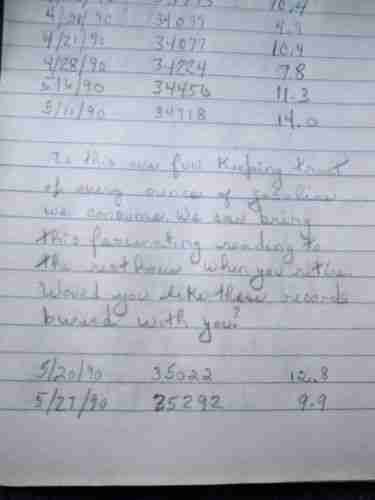 10.4
4/21/90 34077 10.4
4/28/90 34224 7.8
5/6/90 34456 11.3
5/11/90 34718 14.0
Is this ever fun Keeping track
of every ounce of gasoline
we consume. We can bring
this fascinating reading to
the resthome when you retire.
Would you like these records
buried with you?
5/20/90 35022 12.8
5/27/90 35292 9.9